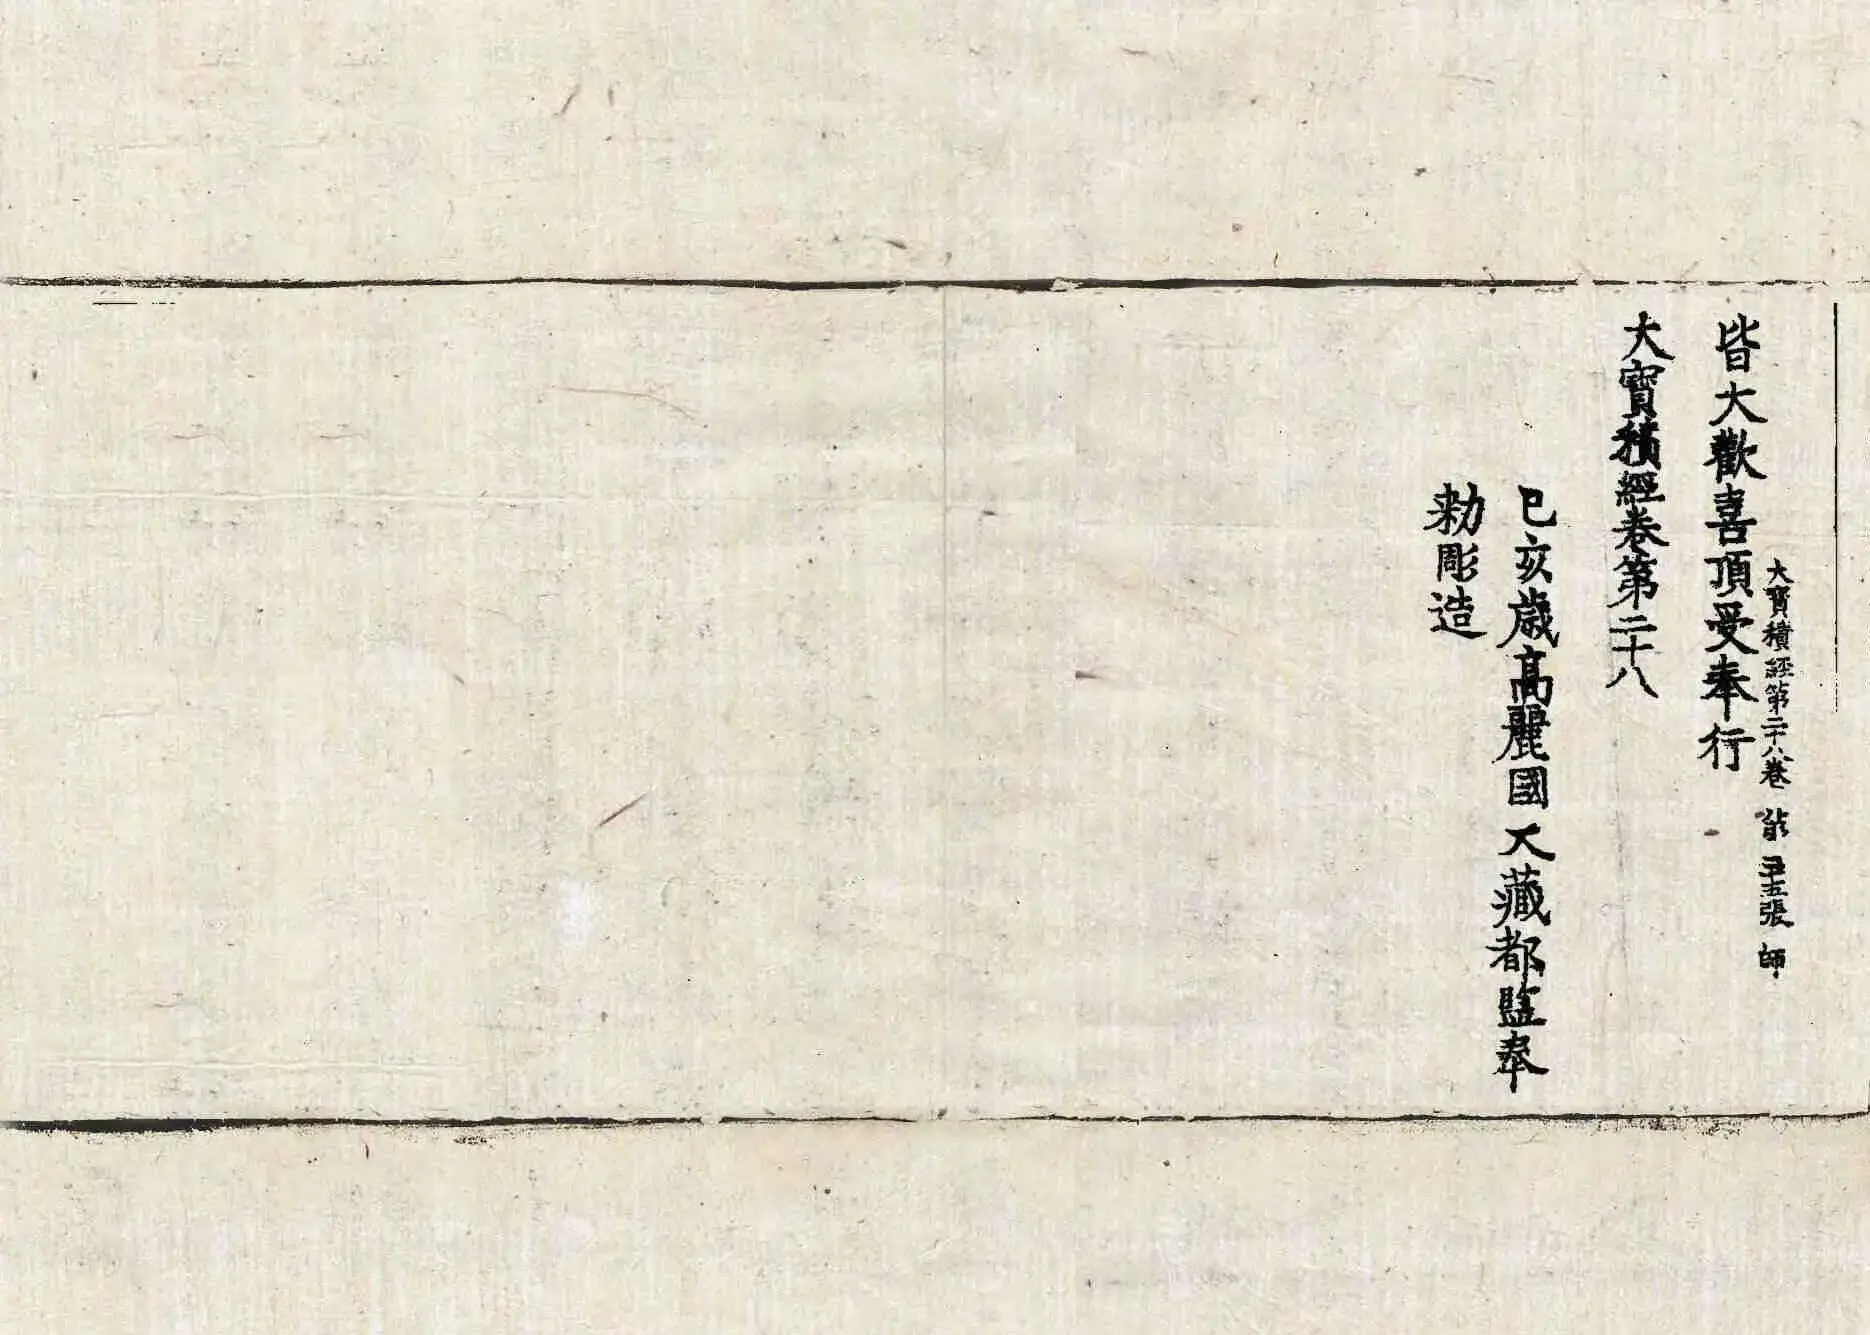 大寶積經第二十八卷 第 五張 師
皆大歡喜頂受奉行
大寶積經卷第二十八
己亥歲高麗國大藏都監奉
勅彫造